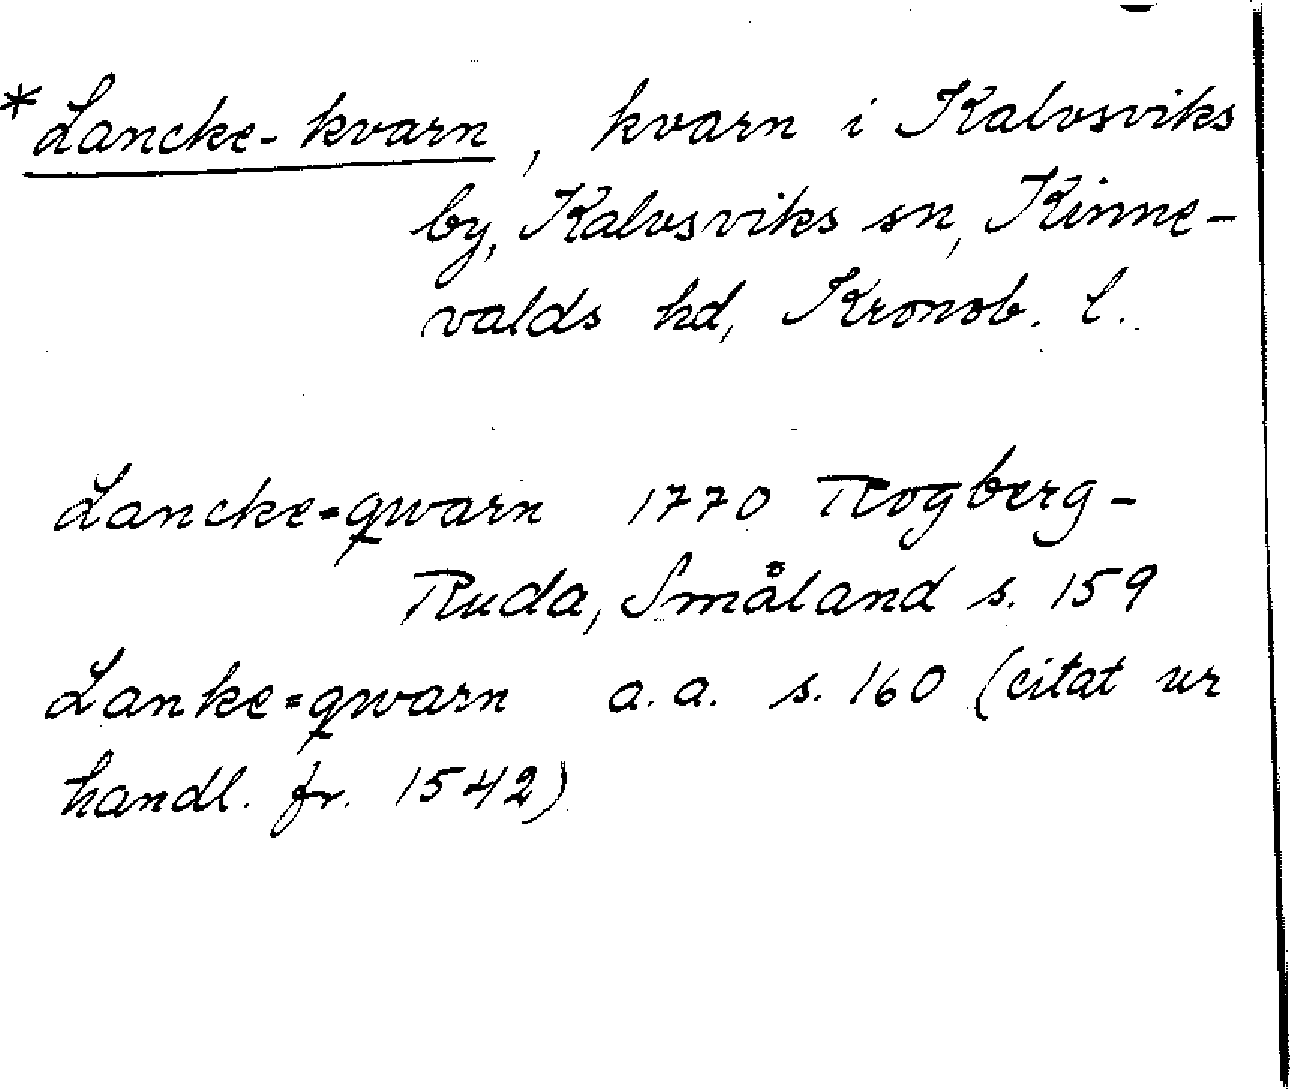 *Lancke-kvarn, kvarn i Kalvsviks
by, Kalvsviks sn, Kinne-
valds hd, Kronob. l.
Lancke=qwarn 1770 Rogberg-
Ruda, Småland s. 159
Lanke=qwarn a.a. s. 160 (citat ur
handl. fr. 1542)